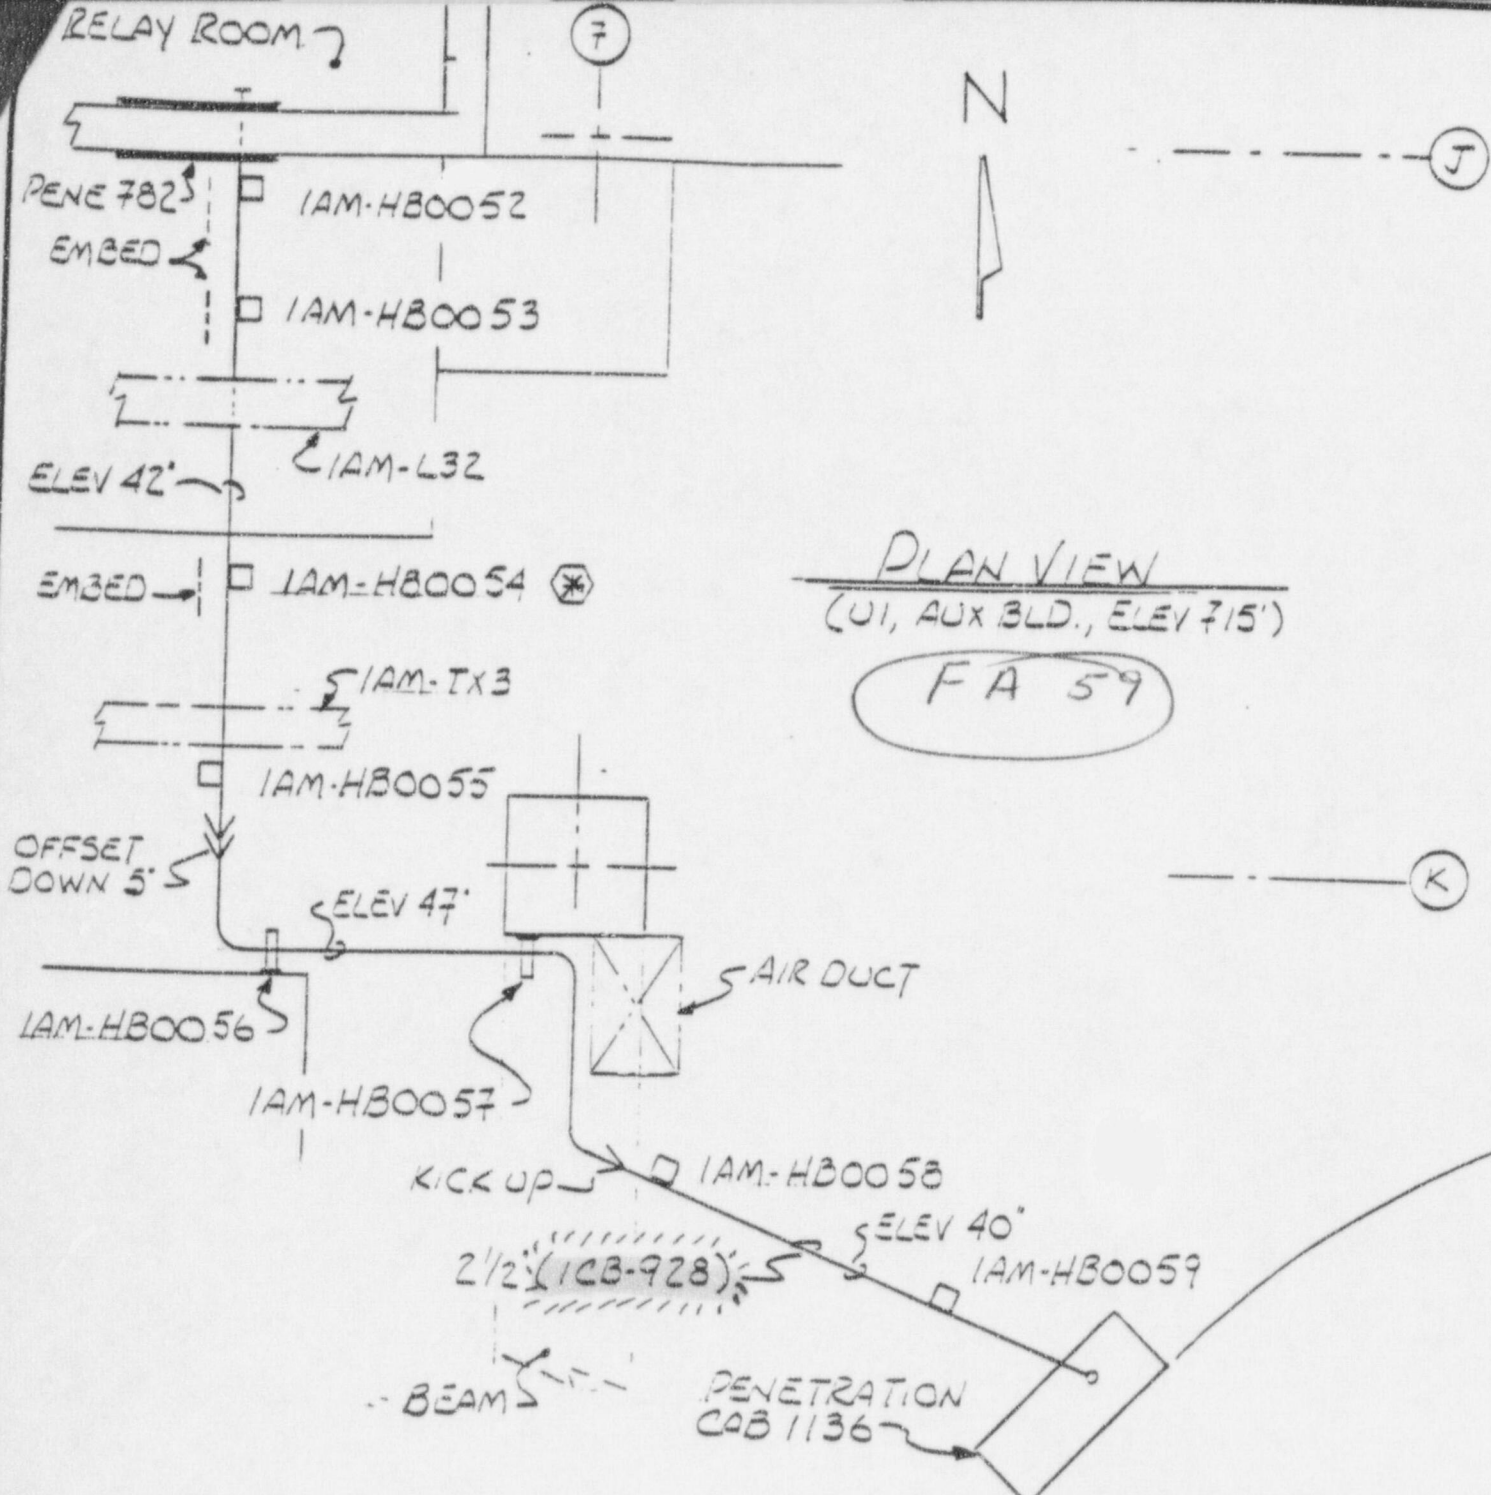 RELAY ROOM
7
N
J
PENE 782
1AM-HB0052
EMBED
1AM-HB0053
1AM-L32
ELEV 42"
PLAN VIEW
(U1, AUX BLD., ELEV 715')
EMBED
1AM-HB0054
FA 59
1AM-TX3
1AM-HB0055
OFFSET
DOWN 5"
ELEV 47"
K
AIR DUCT
1AM-HB0056
1AM-HB0057
KICK UP
1AM-HB0058
ELEV 40"
2 1/2" (1CB-928)
1AM-HB0059
BEAM
PENETRATION
CAB 1136